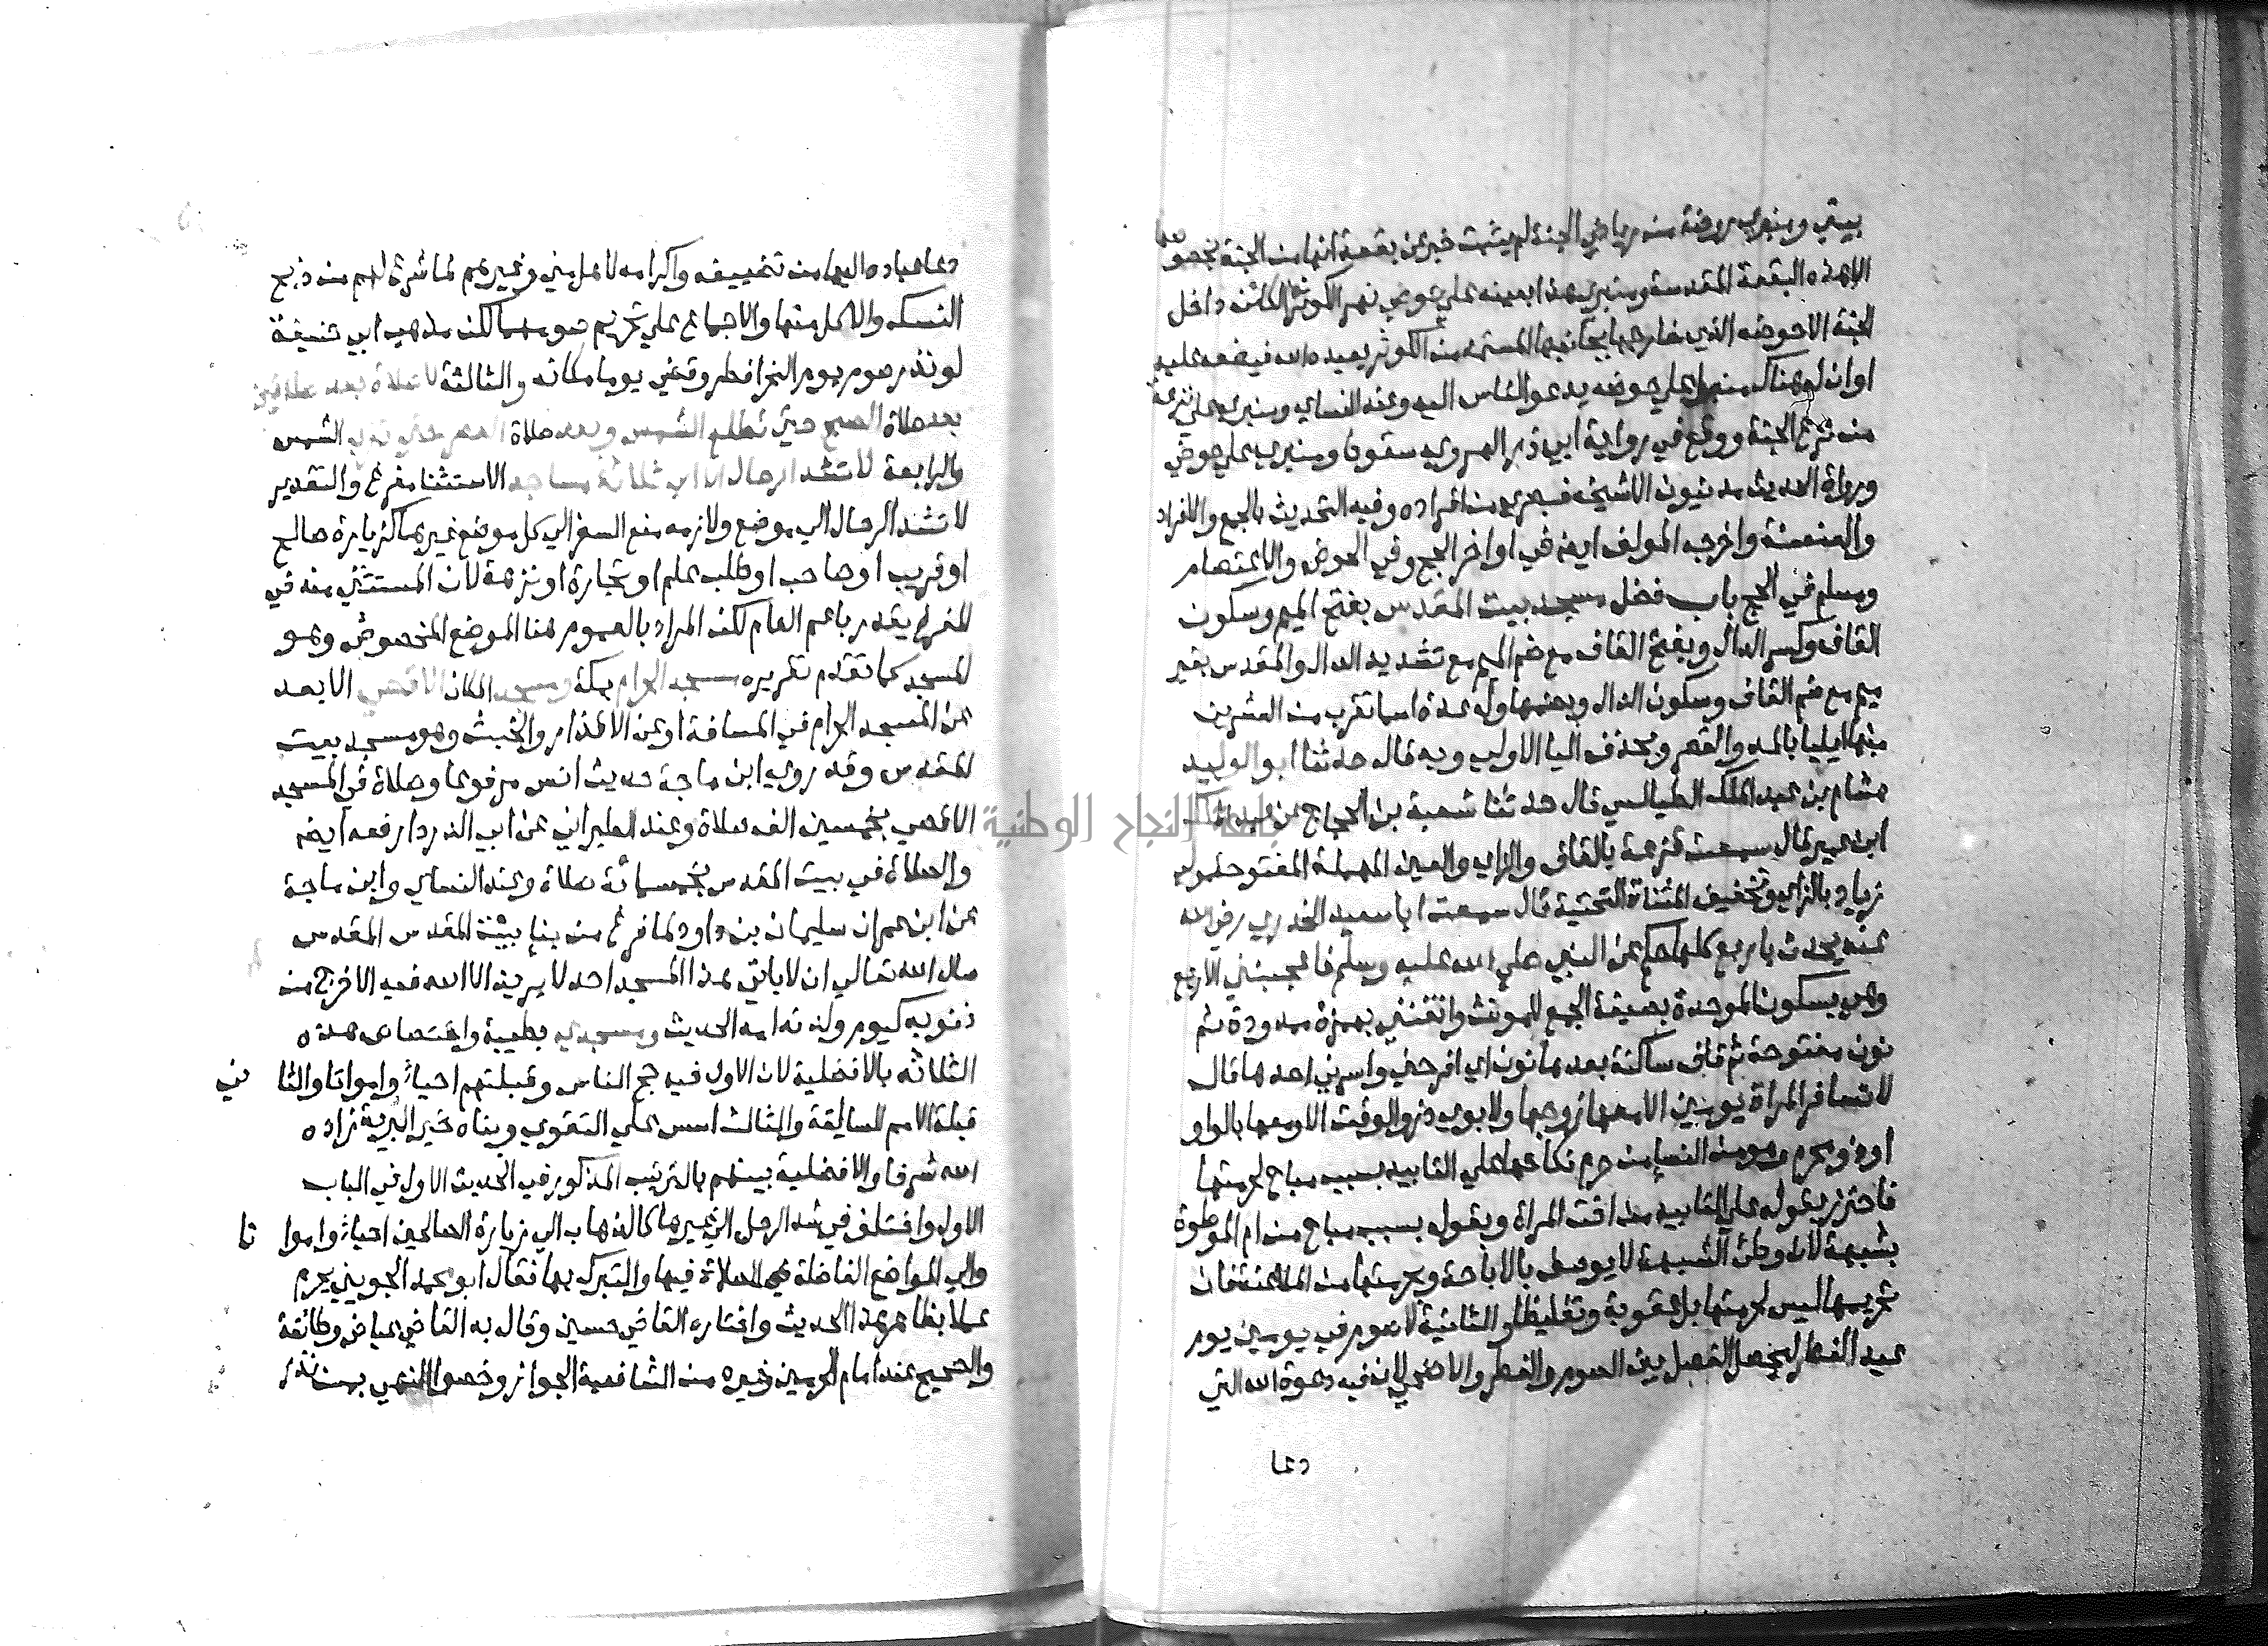 بيتي ومنبري روضة من رياض الجنة لم يثبت خبر عن بقعة انها من الجنة بخصوصها
الا هذه البقعة المقدسة ومنبري هذا بعينه علي حوضي نهر الكوثر الكائن داخل
الجنة الا حوضه الذي خارجها بجانبها المستمد من الكوثر يعيده الله فيضعه عليه
او ان له هناك منبرا علي حوضه يدعو الناس اليه وعند النساي ومنبري علي ترعة
من ترع الجنة ووقع في رواية ابي ذر الهروي سقوط ومنبري علي حوضي
ورواة الحديث مدنيون الا شيخه فبصري من افراده وفيه التحديث بالجمع والافراد
والعنعنة واخرجه المولف ايضا في اواخر الحج وفي الحوض والاعتصام
ومسلم في الحج باب فضل مسجد بيت المقدس بفتح الميم وسكون
القاف وكسر الدال وبفتح القاف مع ضم الميم مع تشديد الدال والمقدس بغير
ميم مع ضم القاف وسكون الدال وبضمها وله عدة اسما تقرب من العشرين
منها ايليا بالمد والقصر وبحذف اليا الاولي وبه قال حدثنا ابو الوليد
هشام بن عبد الملك الطيالسي قال حدثنا شعبة بن الحجاج عن عبد الملك
ابن عمير قال سمعت قزعة بالقاف والزاي والعين المهملة المفتوحة مولي
زياد بالزاي وتخفيف المثناة التحتية قال سمعت ابا سعيد الخدري رضي الله
عنه يحدث باربع كلها حكم عن النبي صلي الله عليه وسلم فاعجبنني الاربع
وهي بسكون الموحدة بصيغة الجمع للمونث وانقنني بهمزة ممدودة ثم
نون مفتوحة ثم قاف ساكنة بعدها نون اي افرحني واسرني احدها قال
لا تسافر المراة يومين الا معها زوجها ولابوي ذر والوقت الا ومعها بالواو
او ذو محرم وهو من النسا من حرم نكاحها علي التابيد بسبب مباح لحرمتها
فاحترز بقوله علي التابيد من اخت المراة وبقوله بسبب مباح من ام الموطوة
بشبهة لان وطئ الشبهة لا يوصف بالاباحة وبحرمتها من الملاعنة فان
تحريمها ليس لحرمتها بل عقوبة وتغليظا والثانية لا صوم في يومين يوم
عيد الفطر ليحصل الفصل بين الصوم والفطر والاضحي لان فيه دعوة الله التي
دعا
دعا عباده اليها من تضييفه واكرامه لاهل مني وغيرهم لما شرع لهم من ذبح
النسك والاكل منها والاجماع علي تحريم صومهما لكن مذهب ابي حنيفة
لو نذر صوم يوم النحر افطر وقضي يوما مكانه والثالثة لا صلاة بعد صلاتين
بعد صلاة الصبح حتي تطلع الشمس وبعد صلاة العصر حتي تغرب الشمس
والرابعة لا تشد الرحال الا الي ثلاثة مساجد الاستثنا مفرغ والتقدير
لا تشد الرحال الي موضع ولازمه منع السفر الي كل موضع غيرها كزيارة صالح
او قريب او صاحب او طلب علم او تجارة او نزهة لان المستثني منه في
المفرغ يقدر باعم العام لكن المراد بالعموم هنا الموضع المخصوص وهو
المسجد كما تقدم تقريره مسجد الحرام بمكة ومسجد المكان الاقصي الابعد
عن المسجد الحرام في المسافة او عن الاقذار والخبث وهو مسجد بيت
المقدس وقد روي ابن ماجة حديث انس مرفوعا وصلاة في المسجد
الاقصي بخمسين الف صلاة وعند الطبراني عن ابي الدردا رفعه ايضا
والصلاة في بيت المقدس بخمسمائة صلاة وعند النساي وابن ماجة
عن ابن عمر ان سليمان بن داود لما فرغ من بنا بيت المقدس المقدس
سال الله تعالي ان لا ياتي هذا المسجد احد لا يريد الا الصلاة فيه الا خرج من
ذنوبه كيوم ولدته امه الحديث ومسجدي بطيبة واختصاص هذه
الثلاثه بالافضلية لان الاول فيه حج الناس وقبلتهم احياء وامواتا والثاني
قبلة الامم السالفة والثالث اسس علي التقوي وبناه خير البرية زاده
الله شرفا والافضلية بينهم بالترتيب المذكور في الحديث الاول في الباب
الاول واختلف في شد الرحل الي غيرها كالذهاب الي زيارة الصالحين احياء وامواتا
والي المواضع الفاضلة للصلاة فيها والتبرك بها فقال ابو محمد الجويني يحرم
عملا بظاهر هذا الحديث واختاره القاضي حسين وقال به القاضي عياض وطائفة
والصحيح عند امام الحرمين وغيره من الشافعية الجواز وخصوا النهي بمن نذر
جامعة النجاح الوطنية